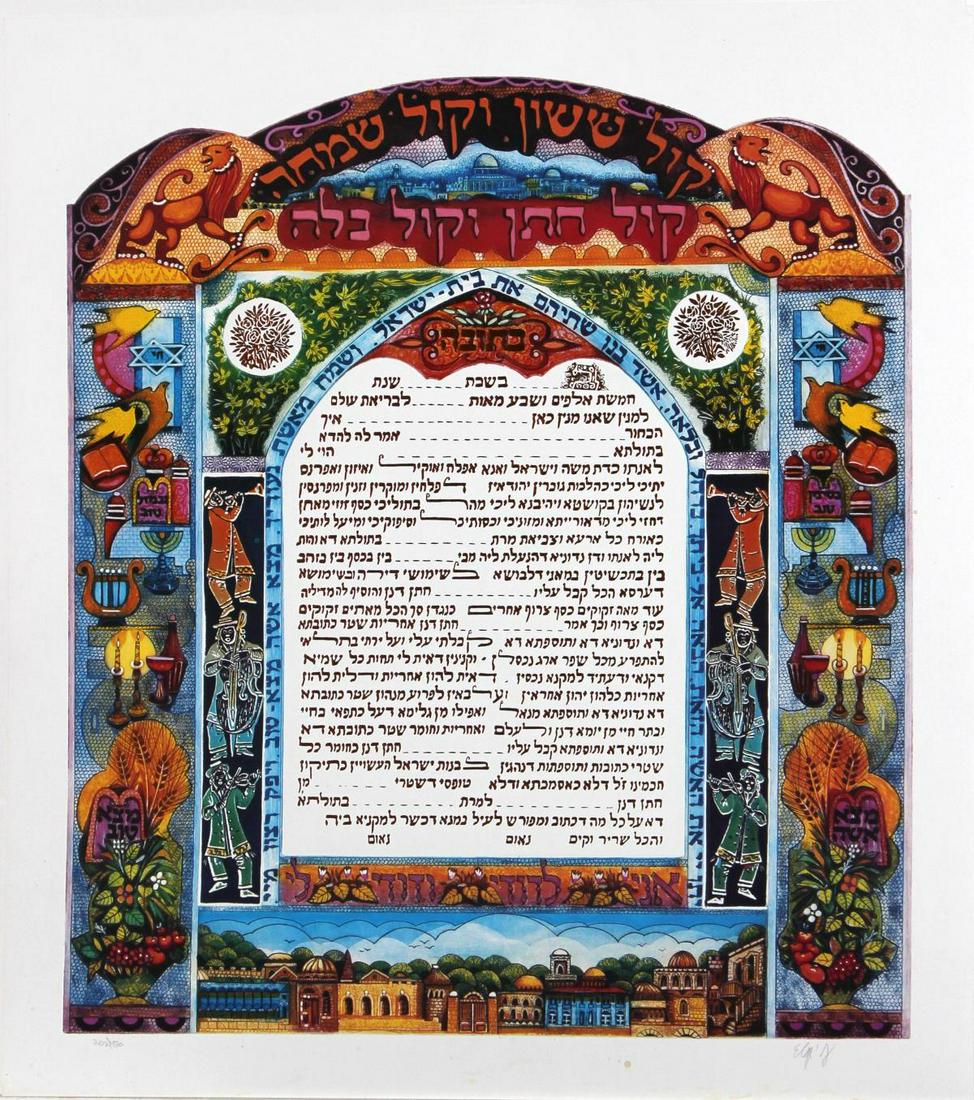 קול ששון וקול שמחה
קול חתן וקול כלה
יתן יי את האשה הבאה אל ביתך כרחל וכלאה אשר בנו שתיהם את בית-ישראל. ושמח מאשת נעוריך מצא אשה מצא טוב ויפק רצון מיי
כתובה
בשבת שנת
חמשת אלפים ושבע מאות לבריאת עולם
למנין שאנו מנין כאן איך
הבחור אמר לה להדא
בתולתא הוי לי
לאנתו כדת משה וישראל ואנא אפלח ואוקיר ואיזון ואפרנס
יתיכי ליכי כהלכות גוברין יהודאין דפלחין ומוקרין וזנין ומפרנסין
לנשיהון בקושטא ויהיבנא ליכי מהר בתוליכי כסף זוזי מאתן
דחזי ליכי מדאורייתא ומזוניכי וכסותיכי וסיפוקיכי ומיעל לותיכי
כאורח כל ארעא וצביאת מרת בתולתא דא והות
ליה לאנתו ודן נדוניא דהנעלת ליה מבי בין בכסף בין בזהב
בין בתכשיטין במאני דלבושא בשימושי דירה ובשימושא
דערסא הכל קבל עליו חתן דנן והוסיף להמדיליה
עוד מאה זקוקים כסף צרוף אחרים כנגדן סך הכל מאתים זקוקים
כסף צרוף וכך אמר חתן דנן אחריות שטר כתובתא
דא ונדוניא דא ותוספתא דא קבלתי עלי ועל ירתי בתראי
להתפרע מכל שפר ארג נכסין וקנינין דאית לי תחות כל שמיא
דקנאי ודעתיד למקנא נכסין דאית להון אחריות ודלית להון
אחריות כלהון יהון אחראין וערבאין לפרוע מנהון שטר כתובתא
דא נדוניא דא ותוספתא מנאי ואפילו מן גלימא דעל כתפאי בחיי
ובתר חיי מן יומא דנן ולעלם ואחריות וחומר שטר כתובתא דא
ונדוניא דא ותוספתא קבל עליו חתן דנן כחומר כל
שטרי כתובות ותוספתות דנהגין בבנות ישראל העשויין כתיקון
חכמינו זל דלא כאסמכתא ודלא טופסי דשטרי מן
חתן דנן למרת בתולתא
דא על כל מה דכתוב ומפורש לעיל במנא דכשר למקניא ביה
והכל שריר וקים נאום נאום
אני לדודי ודודי לי
חי
חי
מצא אשה
מצא טוב